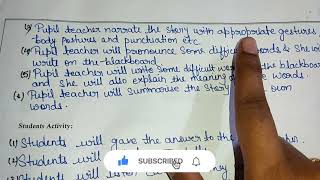 (3) Pupil teacher narrate the story with appropriate gestures
body postures and punctuation etc.
(4) Pupil teacher will pronounce some difficult words & she will
write on the blackboard
(5) Pupil teacher will write some difficult words the blackboard
and She will also explain the meaning words.
(6) Pupil teacher will Summarise the Story own
words.
Students Activity:
(1) Students will gave the answer to the
(2) Students will
(3) Students will
SUBSCRIBED